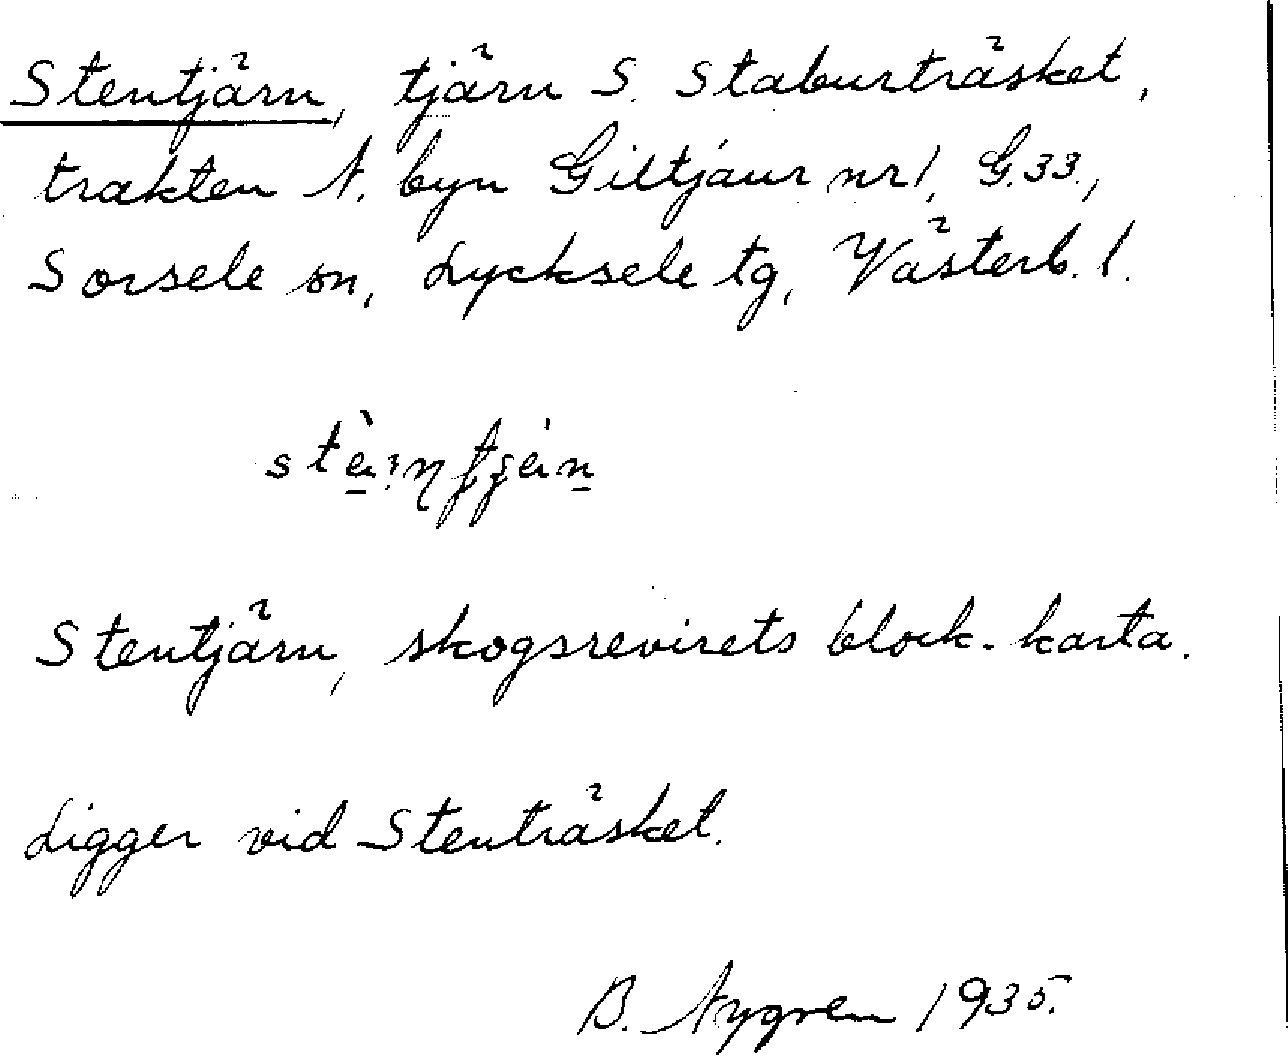 Stentjärn, tjärn S. Staburträsket,
trakten N. byn Giltjaur nr 1, G.33.,
Sorsele sn, Lycksele tg, Västerb. l.
Stentjärn, skogsrevirets block-karta.
Ligger vid Stenträsket.
B. Nygren 1935.